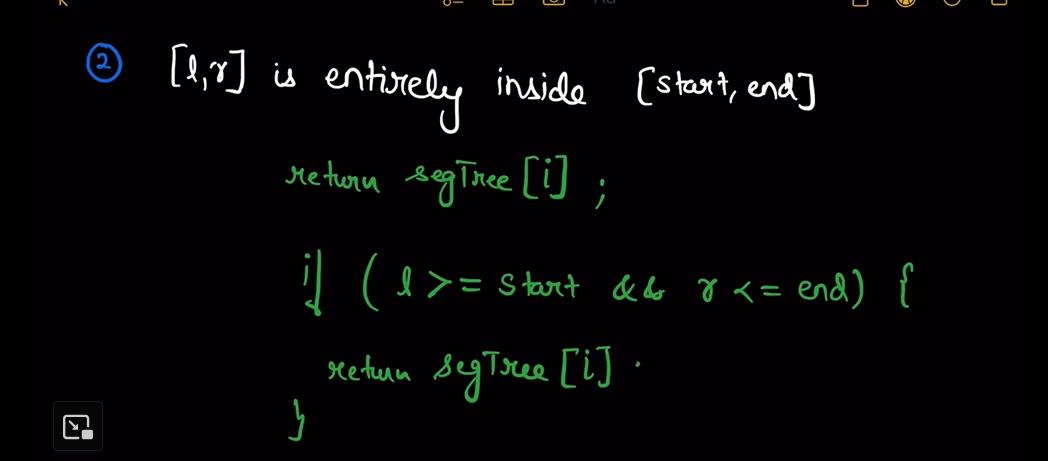 ② [l,r] is entirely inside [start, end]
return segTree[i] ;
if ( l >= start && r <= end) {
return segTree[i] .
}